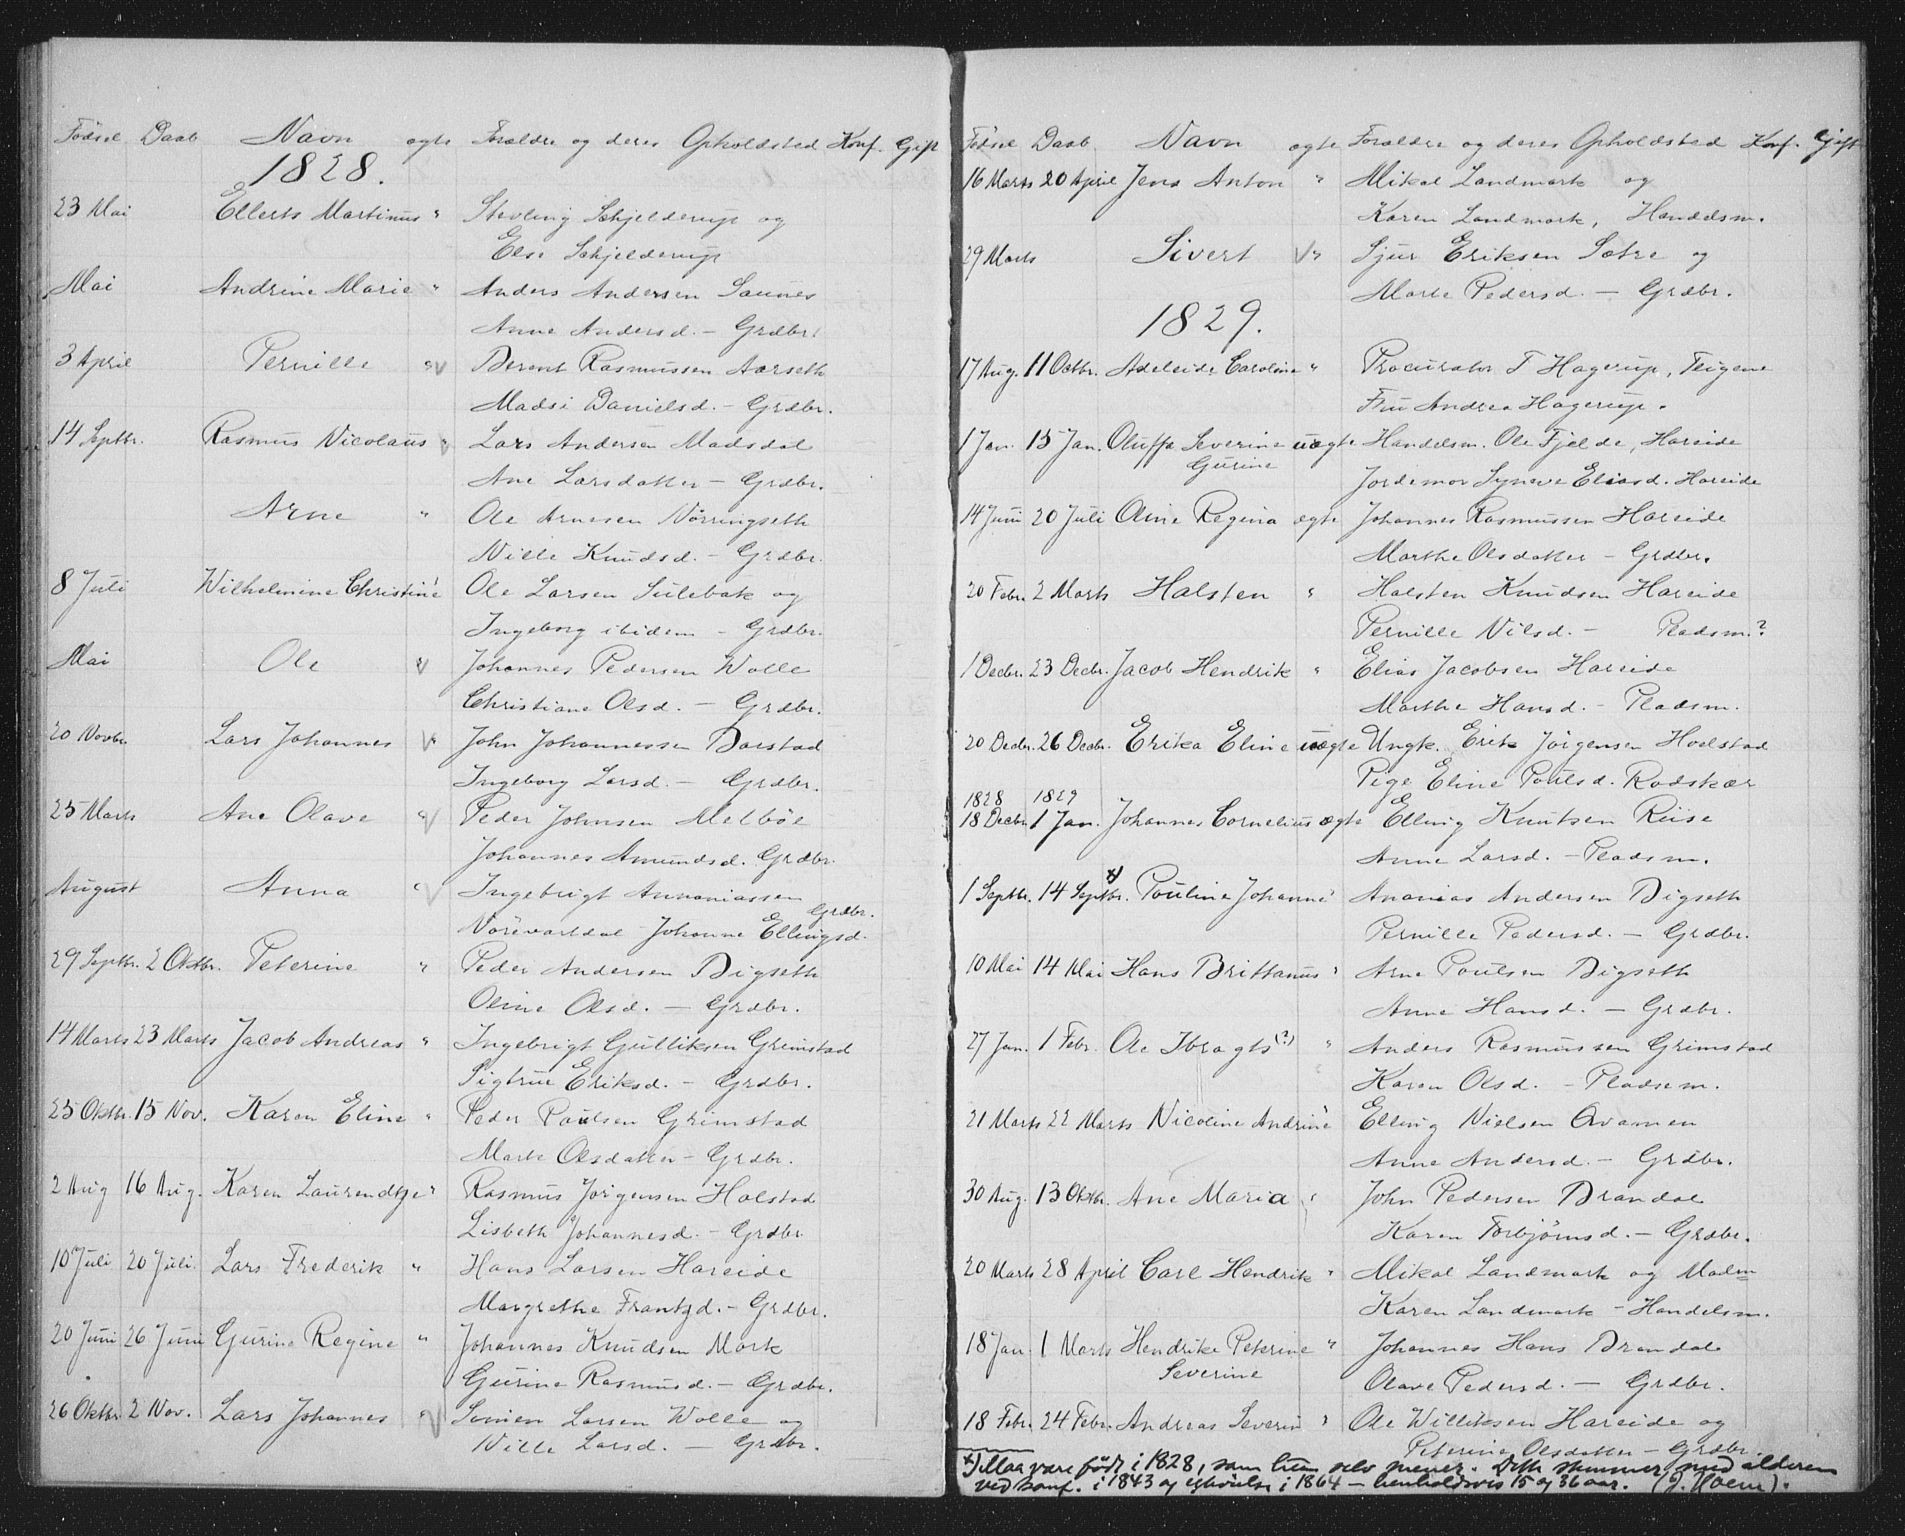 Födsel Daab Navn ægte Forældre og deres Opholdsted Konf. Gift
1828.
23 Mai Ellerts Martinus " Stevling Schjelderup og
Else Schjelderup
Mai Andrine Marie " Anders Andersen Saunes
Anne Andersd. – Grdbr.
3 April Pernille " v Berent Rasmussen Aarseth
Madsi Danielsd. – Grdbr.
14 Septbr. Rasmus Nicolaus " v Lars Andersen Madsdal
Ane Larsdatter – Grdbr.
Arne " Ole Arnesen Nörringseth
Nille Knudsd. – Grdbr.
8 Juli Wilhelmine Christine " Ole Larsen Sulebak og
Ingeborg ibidem – Grdbr.
Mai Ole " v Johannes Pedersen Wolle
Christiane Olsd. – Grdbr.
20 Novbr. Lars Johannes v " John Johannessen Barstad
Ingeborg Larsd. – Grdbr.
25 Marts Ane Olave " v Peder Johnsen Melböe
Johannes Amundsd. Grdbr.
August Anna " v Ingebrigt Annaniassen
Grdbr.
Nörevartdal Johanne Ellingsd.
29 Septbr. 2 Oktbr. Peterine " Peder Andersen Bigseth
Oline Olsd. – Grdbr.
14 Marts 23 Marts Jacob Andreas " Ingebrigt Gulliksen Grimstad
Sigtrue Eriksd. – Grdbr.
25 Oktbr. 15 Nov. Karen Eline " Peder Paulsen Grimstad
Marte Olsdatter – Grdbr.
2 Aug 16 Aug. Karen Laurendtze " Rasmus Jörgensen Holstad
Lisbeth Johannesd. – Grdbr.
10 Juli 20 Juli. Lars Frederik " Hans Larsen Hareide
Margrethe Frantzd. – Grdbr.
20 Juni 26 Juni Gurine Regine " Johannes Knudsen Mork
Gurine Rasmusd. – Grdbr.
26 Oktbr. 2 Nov. Lars Johannes " v Simen Larsen Wolle og
Nille Larsd. – Grdbr.
Födsel Daab Navn ægte Forældre og deres Opholdsted Konf. Gift
16 Marts 20 April Jens Anton " Mikal Landmark og
Karen Landmark, Handelsm.
29 Marts Sivert v " Sjur Eriksen Sætre og
Marte Pedersd. – Grdbr.
1829.
17 Aug. 11 Octbr. Adeleide Caroline " Procurator T Hagerup, Teigene
Fru Andrea Hagerup.
1 Jan. 15 Jan. Oluffa Severine uægte Handelsm. Ole Fjelde, Hareide
Gurine
Jordemor Syneve Eliasd. Hareide
14 Juni 20 Juli Oline Regina ægte Johannes Rasmussen Hareide
Marthe Olsdatter – Grdbr.
20 Febr. 2 Marts Halsten " Halsten Knudsen Hareide
Pernille Nilsd. – Pladsm.?
1 Decbr. 23 Decbr. Jacob Hendrik " Elias Jacobsen Hareide
Marthe Hansd. – Pladsm.
20 Decbr. 26 Decbr. Erika Eline uægte Ungk. Erik Jörgensen Holstad
Pige Eline Poulsd. Rodskær
1828 1829
18 Decbr. 1 Jan. Johannes Cornelius ægte Elling Knutsen Riise
Anne Larsd. – Pladsm.
1 Septbr. 14 Septbr. x) Pouline Johanne " Ananias Andersen Bigseth
Pernille Pedersd. – Grdbr.
10 Mai 14 Mai Hans Brittanus " Arne Poulsen Bigseth
Anne Hansd. – Grdbr.
27 Jan. 1 Febr. Ole Ibragts (?) " Anders Rasmussen Grimstad
Karen Olsd. – Pladsm.
21 Marts 22 Marts Nicoline Andrine " Elling Nielsen Qvamen
Anne Andersd. – Grdbr.
30 Aug. 13 Oktbr. Ane Maria " John Pedersen Brandal
Karen Torbjörnsd. – Grdbr.
20 Marts 28 April Carl Hendrik " Mikal Landmark og Madm
Karen Landmark – Handelsm.
18 Jan. 1 Marts Hendrike Peterine " Johannes Hans Brandal
Severine
Olave Pedersd. – Grdbr.
18 Febr. 24 Febr. Andreas Severin " Ole Williksen Hareide og
Peterine Olsdatter – Grdbr.
x) Maa være født i 1828, som hun selv mener. Dette stemmer med alderen
ved konf. i 1843 og i 1864 – henholdsvis 15 og 36 aar. (J. Hoem).